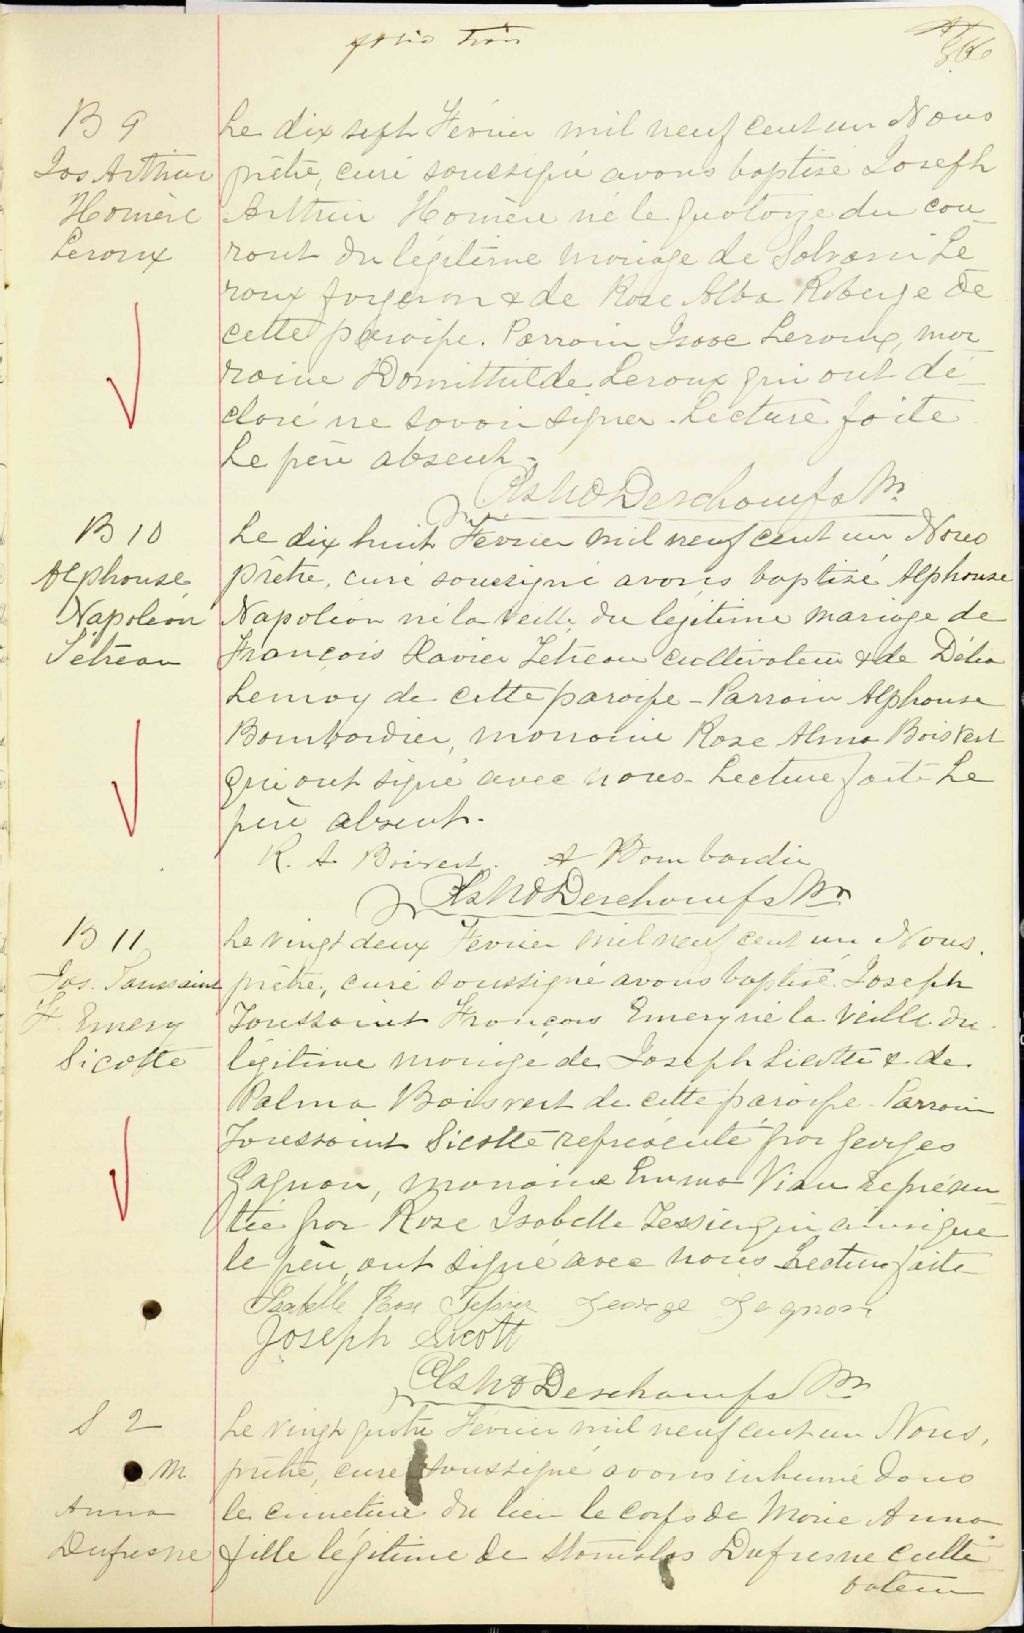 folio trois
B 9
Jos Arthur
Homère
Leroux
Le dix sept Février mil neuf cent un Nous
prêtre, curé soussigné avons baptisé Joseph
Arthur Homère né le quatorze du cou
rant du légitime mariage de Le
roux forgeron & de Rose Alba Roberge de
cette paroisse. Parrain Isaac Leroux, mar
raine Domithilde Leroux qui ont dé
claré ne savoir signer. Lecture faite
Le père absent.
Deschamps Ptre
B 10
Alphonse
Napoléon
Tétreau
Le dix huit Février mil neuf cent un Nous
prêtre, curé soussigné avons baptisé Alphonse
Napoléon né la veille du légitime mariage de
François Xavier Tétreau cultivateur & de Délia
Lemay de cette paroisse - Parrain Alphonse
Bombardier, marraine Rose Alma Boisvert
qui ont signé avec nous. Lecture faite Le
père absent.
R. A. Boisvert. A Bombardier
Deschamps Ptre
B 11
Jos. Toussaint
F. Emery
Sicotte
Le vingt deux Février mil neuf cent un Nous.
prêtre, curé soussigné avons baptisé Joseph
Toussaint François Emery né la veille du
légitime mariage de Joseph Sicotte & de
Palma Boisvert de cette paroisse - Parrain
Toussaint Sicotte représenté par Georges
Gagnon, marraine Emma Viau représen
tée par Rose Isabelle Tessier qui ainsi que
le père ont signé avec nous Lecture faite
Isabelle Rose Tessier George Gagnon
Joseph Sicott
Deschamps Ptre
S 2
M
Anna
Dufresne
Le vingt quatre Février mil neuf cent un Nous,
prêtre, curé soussigné avons inhumé dans
le cimetière du lieu le corps de Marie Anna
fille légitime de Stanislas Dufresne culti
vateur